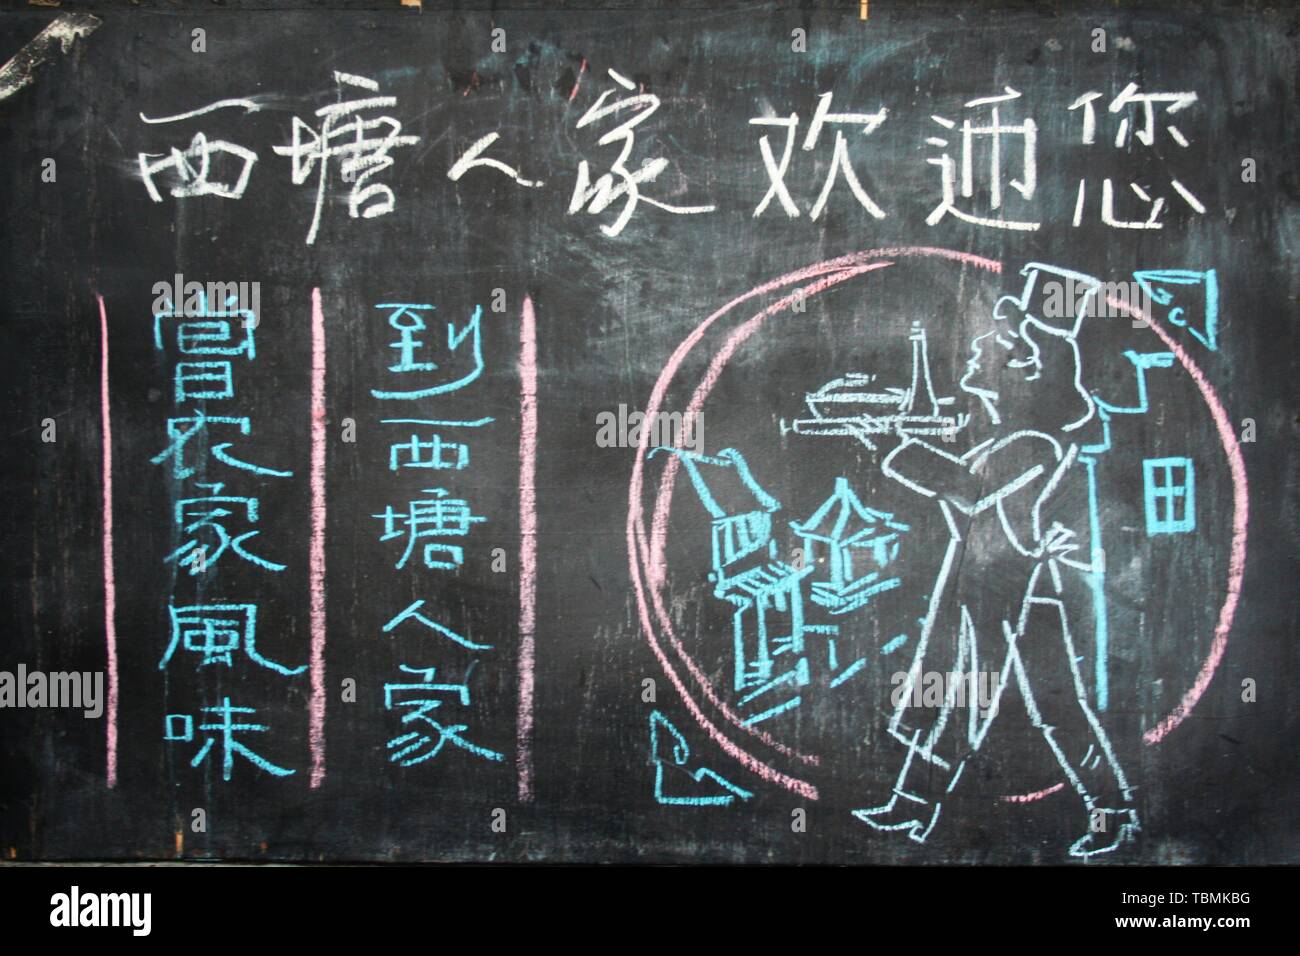 西塘人家欢迎您
到西塘人家
嘗农家風味
alamy
Image ID: TBMKBG
www.alamy.com